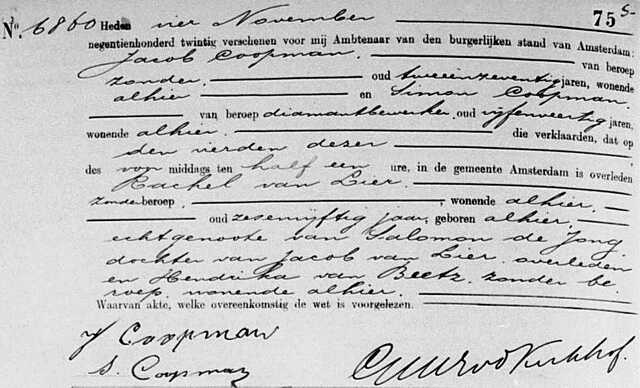 No. 6860 Heden vier November 75 S.
negentienhonderd twintig verschenen voor mij Ambtenaar van den burgerlijken stand van Amsterdam:
Jacob Coopman, van beroep
zonder, oud tweeenzeventig jaren, wonende
alhier en Simon Coopman,
van beroep diamantbewerker, oud vijfenveertig jaren,
wonende alhier, die verklaarden, dat op
den vierden dezer
des voormiddags ten half een ure, in de gemeente Amsterdam is overleden
Rachel van Lier,
zonder beroep, wonende alhier,
oud zesenvijftig jaar, geboren alhier,
echtgenoote van Salomon de Jong,
dochter van Jacob van Lier, overleden
en Hendrika van Beetz, zonder be-
roep, wonende alhier.
Waarvan akte, welke overeenkomstig de wet is voorgelezen.
J Coopman
S. Coopman
Kerkhof.